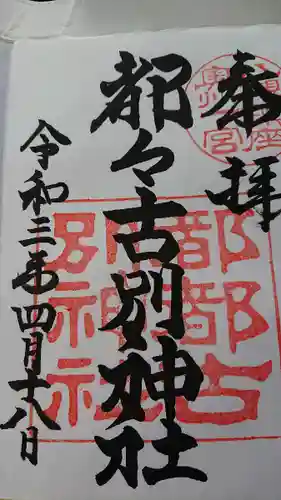 奉拝
都々古別神社
令和三年四月十八日
都都古
別神社